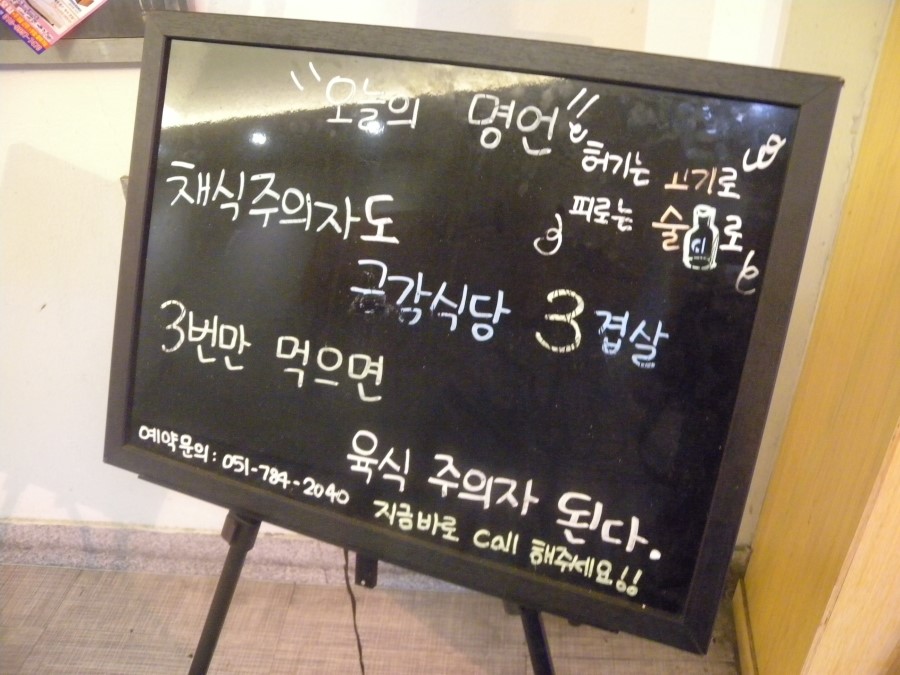 오늘의 명언
허기는 고기로
피로는 술로
채식주의자도
그감식당 3겹살
3번만 먹으면
육식 주의자 된다.
예약문의: 051-784-2040
지금바로 call 해주세요!!